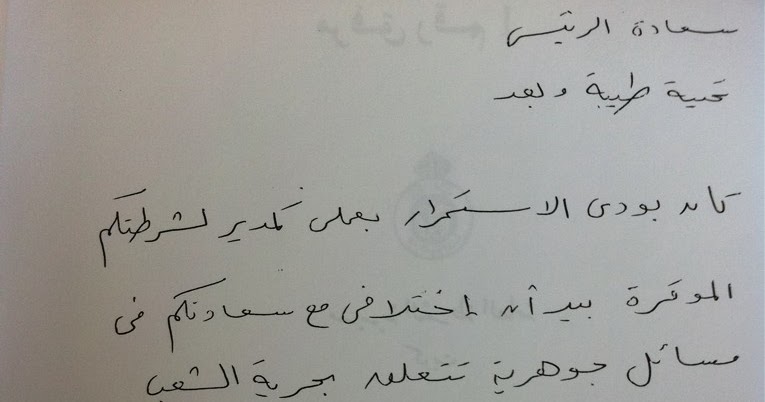 سعادة الرئيس
تحية طيبة وبعد
كان بودى الاستمرار بعملى كمدير لشرطتكم
الموقرة بيد أن إختلافى مع سعادتكم فى
مسائل جوهرية تتعلق بحرية الشعب